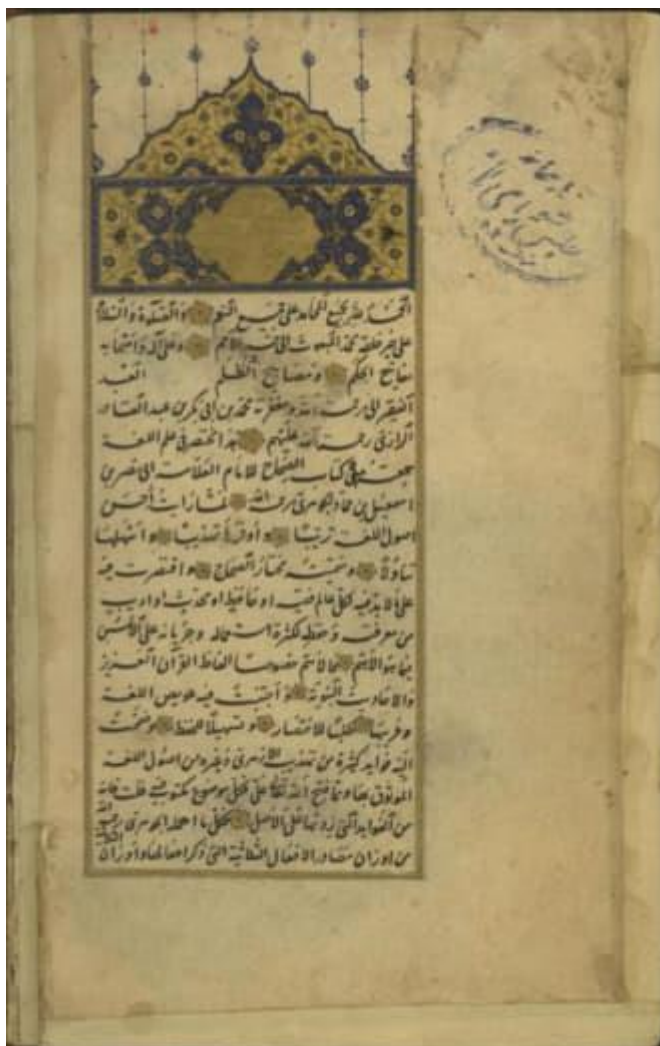 الحمد لله بجميع المحامد على جميع النعم والصلوة والسلام
على خير خلقه محمد المبعوث الى خير الامم وعلى آله واصحابه
مفاتيح الحكم ومصابيح الظلم العبد
المفتقر الى رحمة الله ومغفرته محمد بن ابى بكر بن عبد القادر
الرازى رحمة الله عليهم هذا مختصر فى علم اللغة
جمعته من كتاب الصحاح للامام العلامة ابى نصر
اسمعيل بن حماد الجوهرى رحمه الله لما رأيت أحسن
اصول اللغة ترتيبا وأوفرها تهذيبا واسهلها
تناولا وسميته مختار الصحاح واقتصرت فيه
على ما لا بد منه لكل عالم فقيه او حافظ او محدث او اديب
من معرفته وحفظه لكثرة استعماله وجريانه على الالسن
مما هو الاهم فالاهم خصوصا الفاظ القرآن العزيز
والاحاديث النبوية واجتنبت فيه عويص اللغة
وغريبها طلبا للاختصار وتسهيلا للحفظ وضممت
اليه فوايد كثيرة من تهذيب الازهرى وغيره من اصول اللغة
الموثوق بها ومما فتح الله تعالى على فكل موضع مكتوب فيه قلت فانه
من الفوايد التى زدتها على الاصل وكل ما اهمله الجوهرى رحمه الله
من اوزان مصادر الافعال الثلاثية التى ذكر افعالها واوزان